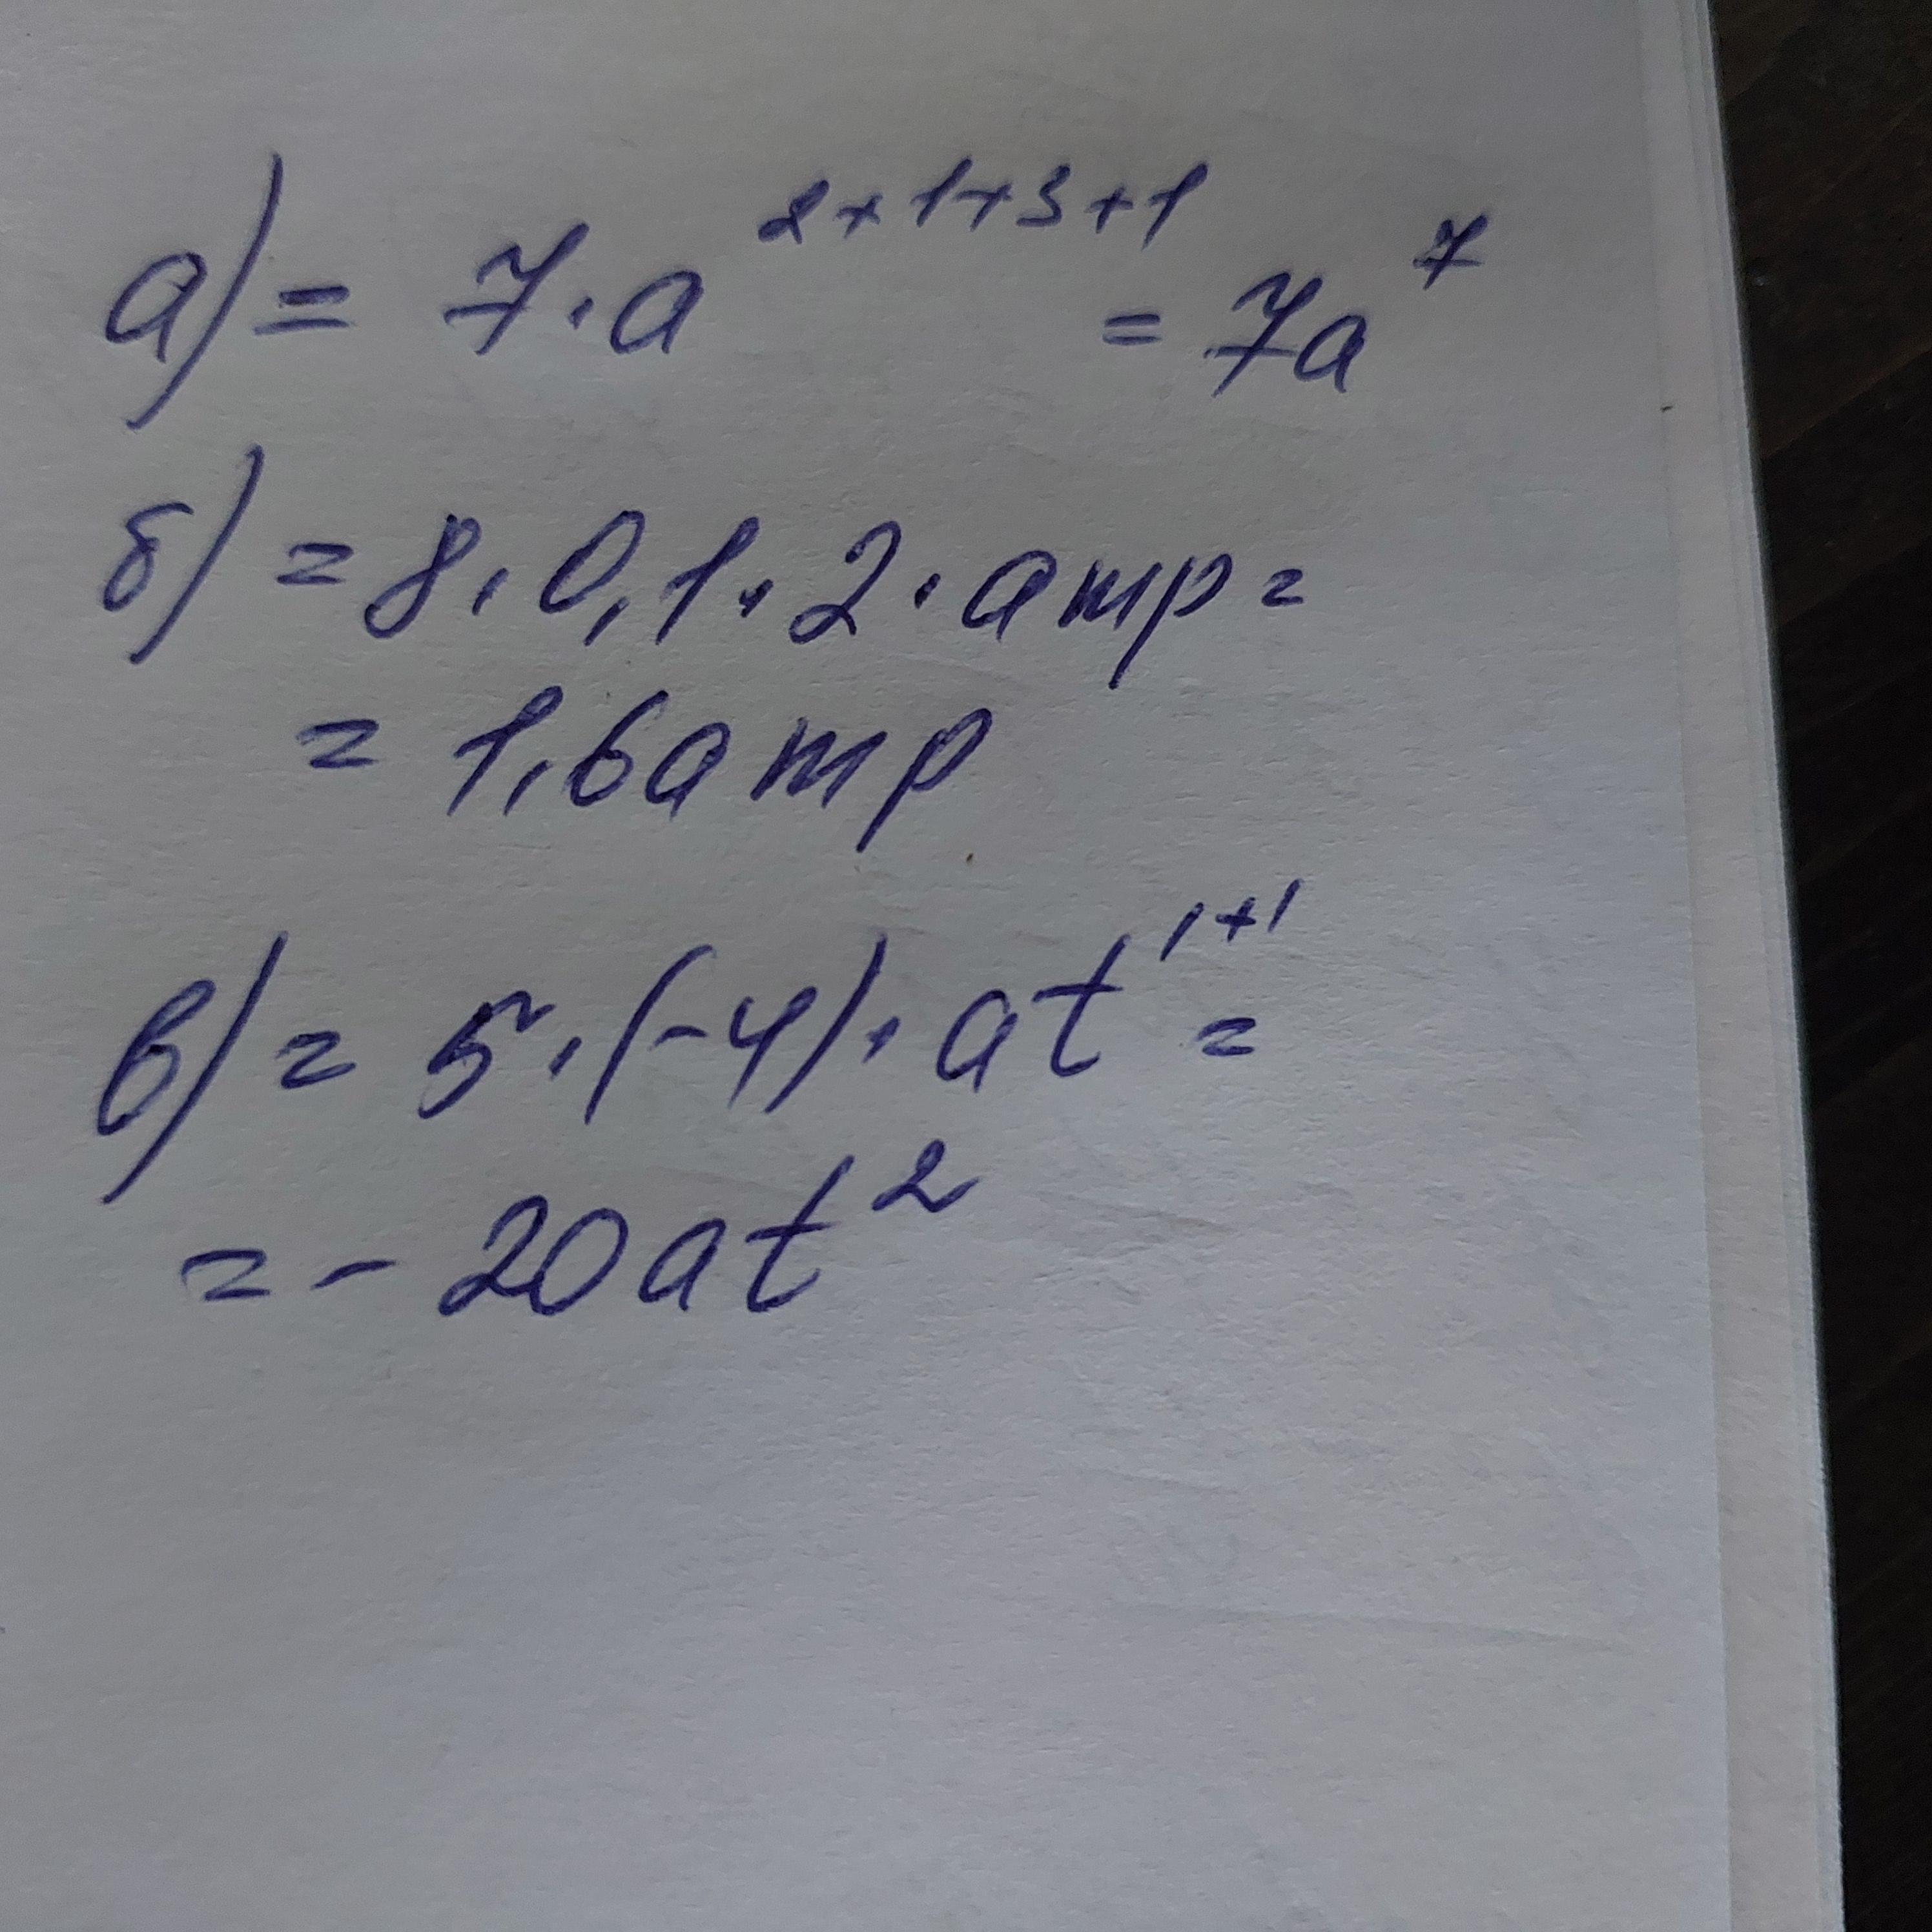 а) = 7·a²⁺¹⁺³⁺¹ = 7a⁷
б) = 8·0,1·2·amp =
= 1,6amp
в) = 5·(-4)·at¹⁺¹ =
= - 20at²